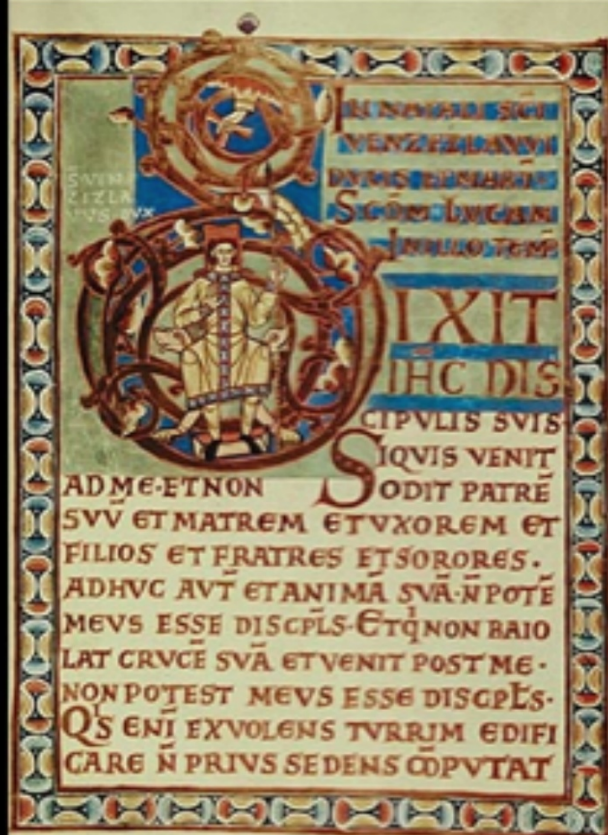 IN NATALI SCI
VENZEZLAVVI
DVCIS ET MARTI
SCDM LVCAM
IN ILLO TEMP
S VEN
ZEZLA
VVS DVX
DIXIT
IHC DIS
CIPVLIS SVIS
SIQVIS VENIT
AD ME·ET NON ODIT PATRĒ
SVV̄ ET MATREM ET VXOREM ET
FILIOS ET FRATRES ET SORORES·
ADHVC AVT̄ ET ANIMĀ SVĀ·N̄ POTĒ
MEVS ESSE DISCPL̄S·ETQ̇ NON BAIO
LAT CRVCĒ SVĀ ET VENIT POST ME·
NON POTEST MEVS ESSE DISCPL̄S·
Q'S ENĪ EX VOLENS TVRRIM EDIFI
CARE N̄ PRIVS SEDENS CŌPVTAT